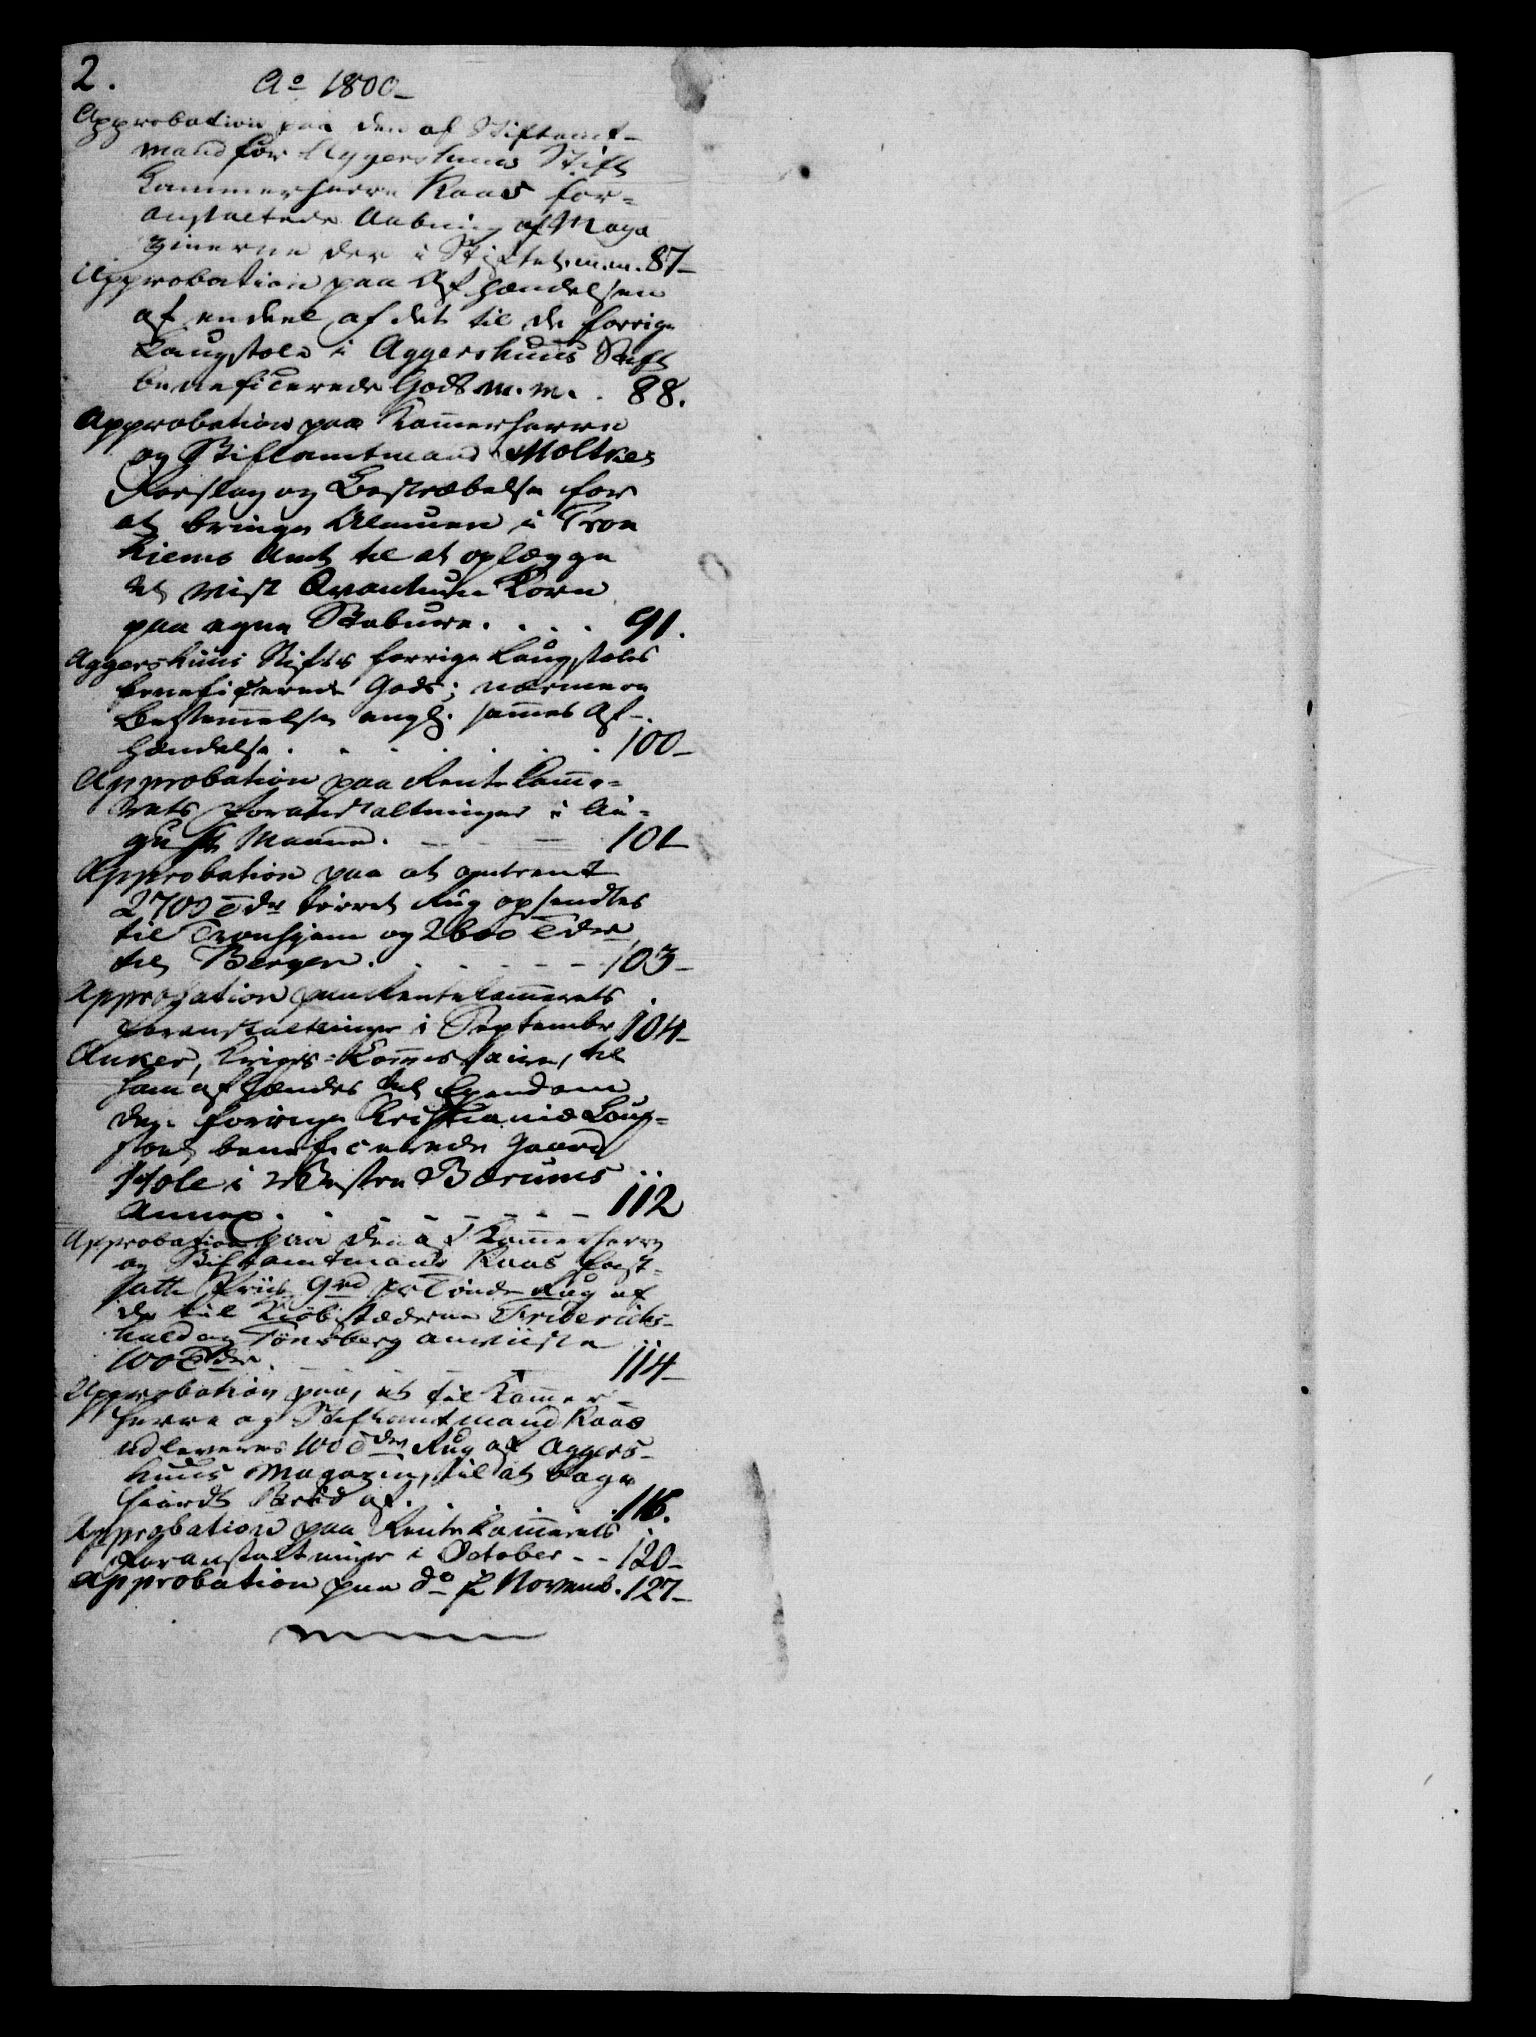 2.
Ao 1800
Approbation paa den af Stiftamt-
mand for Aggershuus Stift
Kammerherre Kaas for-
anstaltede Aabning af Maga
zinerne der i Stiftet m. m. 87
Approbation paa Afhændelsen
af endeel af det til de forrige
Laugstole i Aggershuus Stift
beneficerede Gods m. m. . 88.
Approbation paa Kam̄erherre
og Stiftamtmand Moltkes
Forslag og Bestræbelse for
at bringe Almuen i Tron
hiems Amt til at oplægge
et vist Qvantum Korn
paa egne Stabure. . . . 91.
Aggershuus Stifts forrige Laugstoles
beneficerede Gods; nærmere
Bestem̄else angl. sam̄es Af-
hændelse . . . . . . . 100
Approbation paa Rente Kam̄e-
rets foranstaltninger i Au-
gusti Maaned. 101
Approbation paa at omtrent
2700 Tdr tørret Rug opsendtes
til Tronhjem og 2600 Tdr
til Bergen. . . . . . 103
Approbation paa Rentekam̄erets
foranstaltninger i Septembr 104
Anker, Krigs-Kom̄issaire, til
ham afhændes det Ejendom
den forrige Kristiania Laug-
stoel beneficerede Gaard
Hole i Vestre Bærums
Annex. . . . . . . 112
Approbation paa den af Kam̄erherre
og Stiftamtmand Kaas fast-
satte Priis 9 rd pr Tønde Rug af
de til Kiøbstæderne Friderichs-
hald og Tønsberg anviiste
100 Tdr. 114
Approbation paa, at til Kam̄er-
herre og Stiftamtmand Kaas
udleveres 100 Tdr Rug af Aggers-
huus Magazin, til at bage
haardt Brød af. . . . . 116.
Approbation paa Rente Kam̄erets
foranstaltninger i October - - 120
Approbation paa do f Novemb. 127